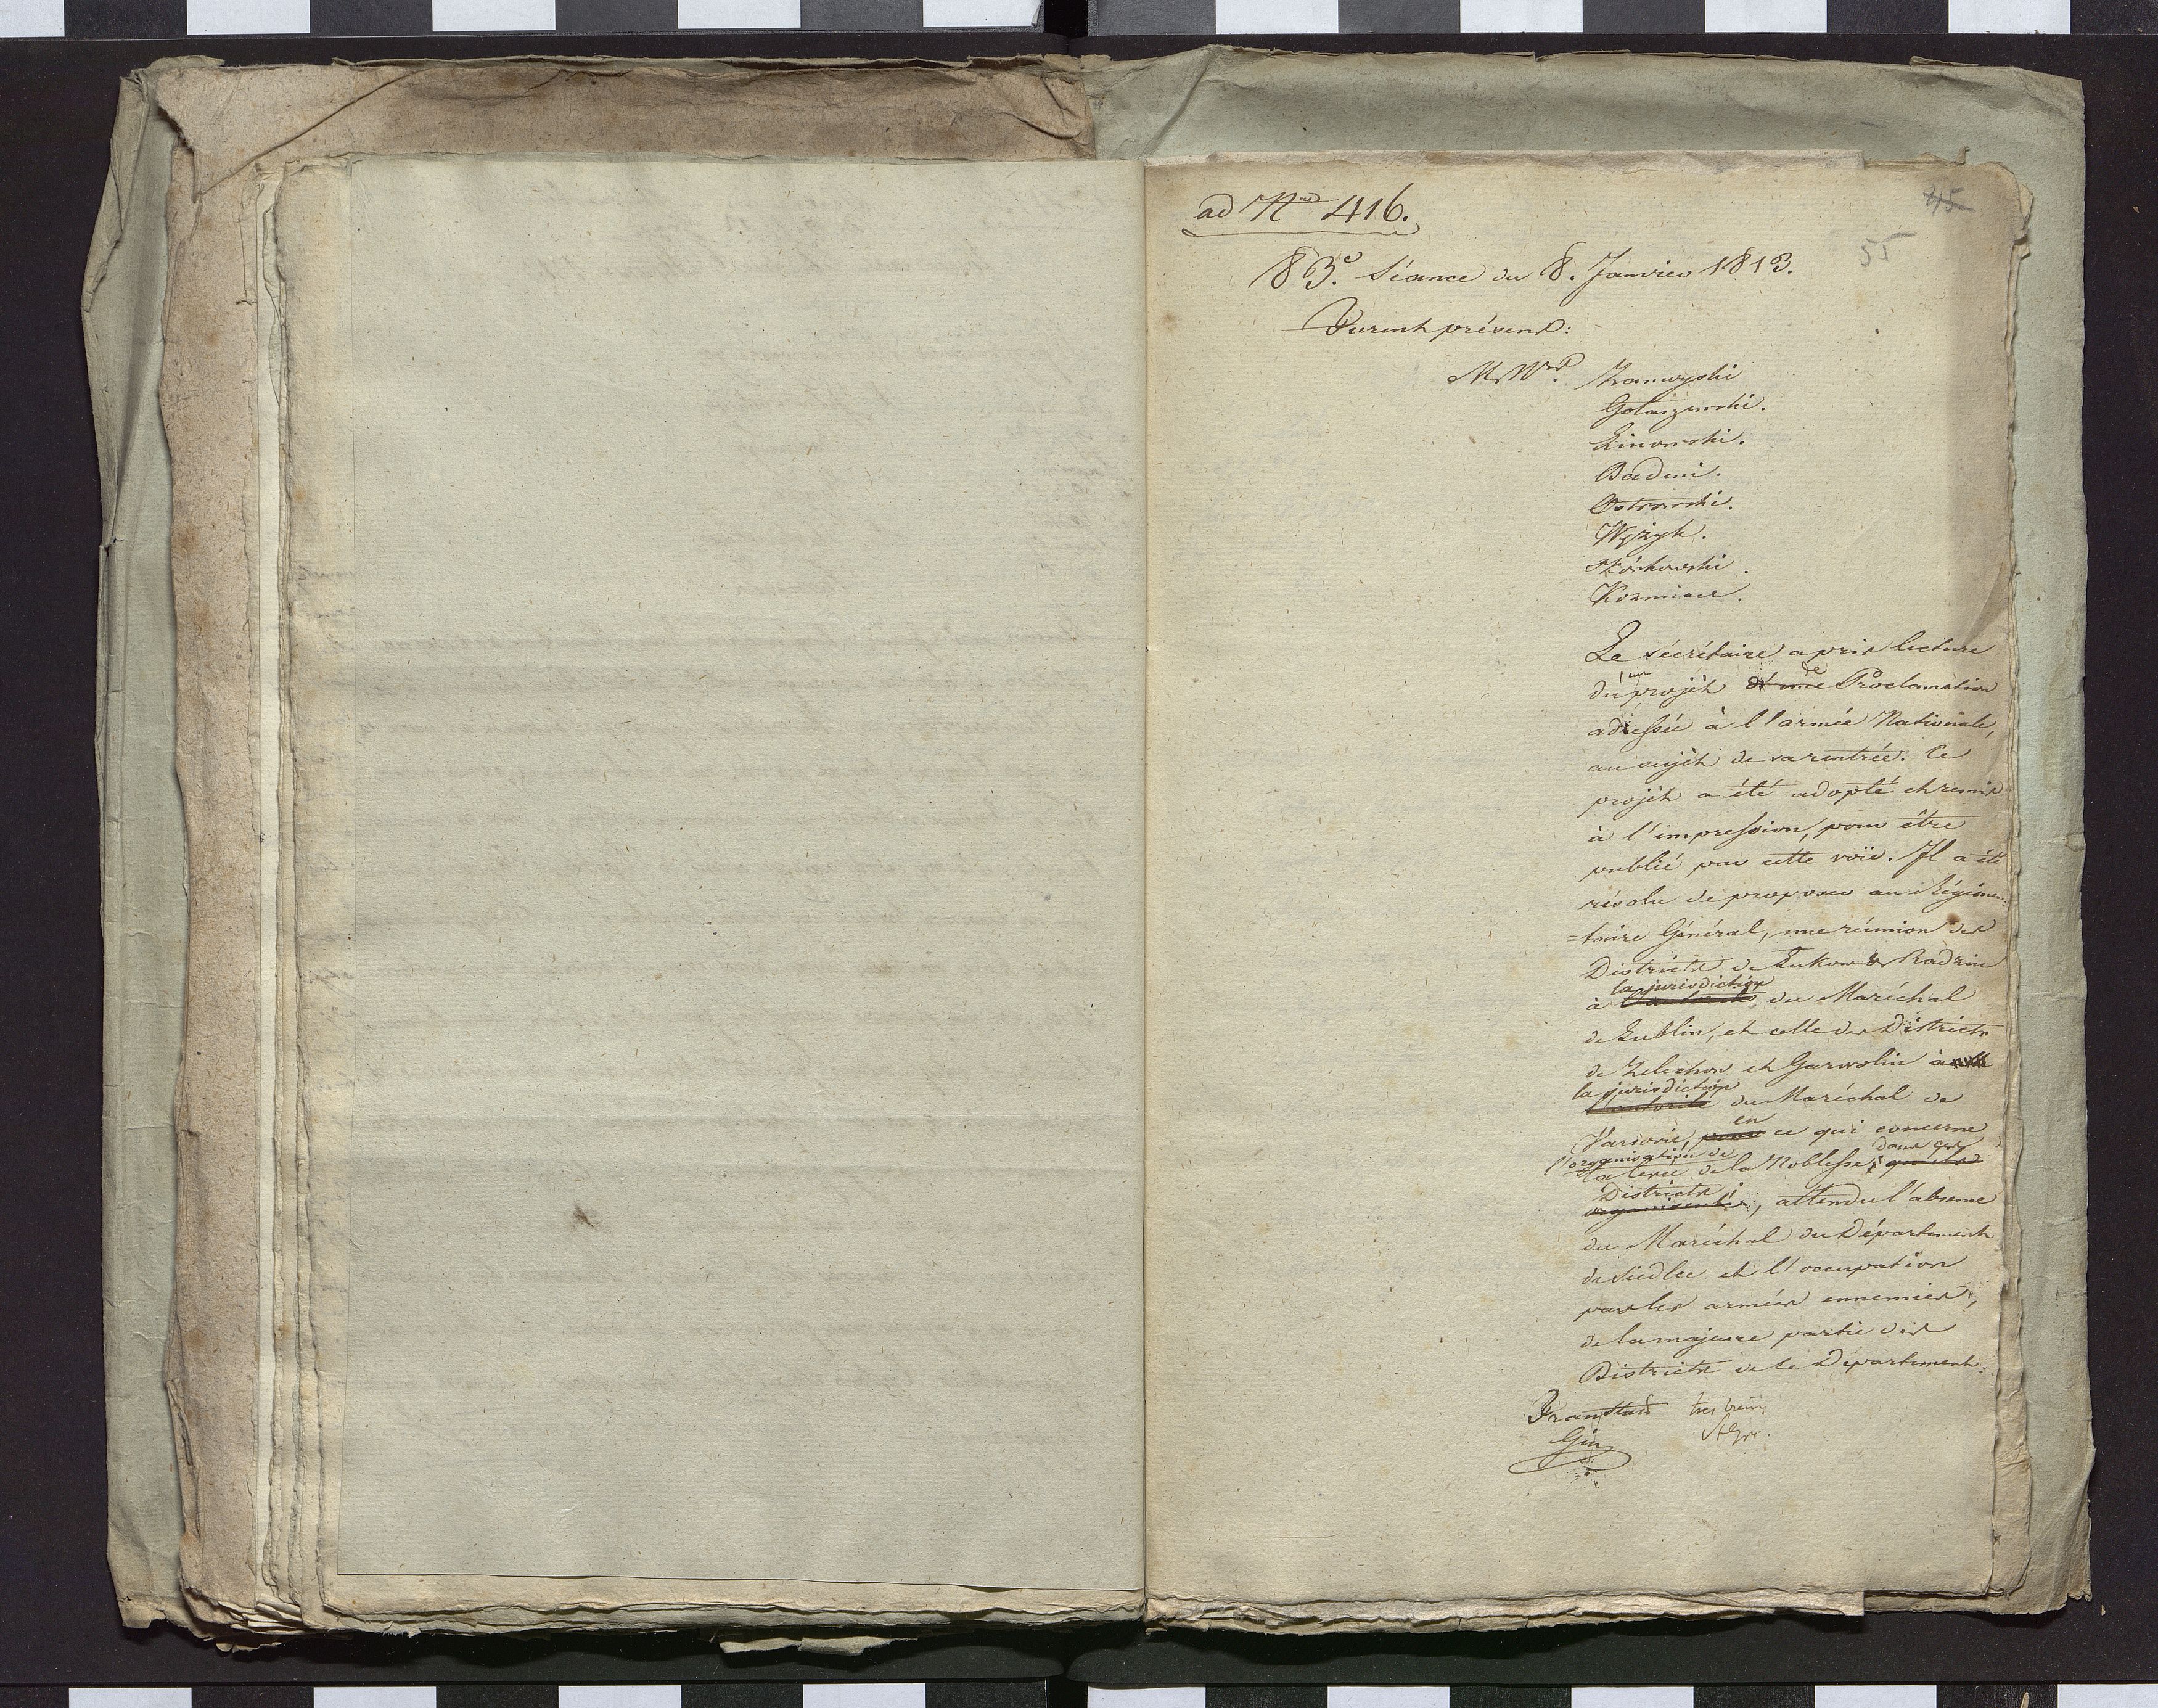 ad Nrd 416.
45
55
83e. Séance du 8. Janvier 1813.
Furent présens:
MrMrs. Zamoyski
Gołaszewski.
Linowski.
Badeni.
Ostrowski.
Wężyk.
Skórkowski.
Kozmian.
Le sécrétaire a pris lecture
d'un projèt de Proclamation
adressée à l'armée Nationale,
au sujèt de sa rentrée. Ce
projèt a été adopté et remis
à l'impression, pour être
publié par cette voïe. Il a été
résolu de proposer au Régimen-
=taire Général, une réunion des
Districts de Lukow & Radzin
la jurisdiction
à l'autorité du Maréchal
de Lublin, et celle des Districts
de Zelechow et Garwolin à
la jurisdiction
l'autorité du Maréchal de
en
Varsovie, pour ce qui concerne
l'organisation de dans ces
la levée de la Noblesse, que les
Districts
organisent, attendu l'absence
du Maréchal du Département
de Siedlce et l'occupation
par les armées ennemies,
de la majeure partie des
Districts de ce Département.
très bien